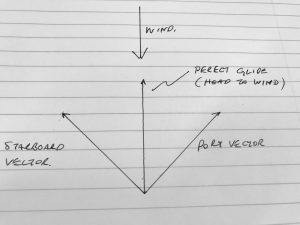 WIND.
PERECT GLIDE
(HEAD TO WIND)
STARBOARD
VECTOR.
PORT VECTOR